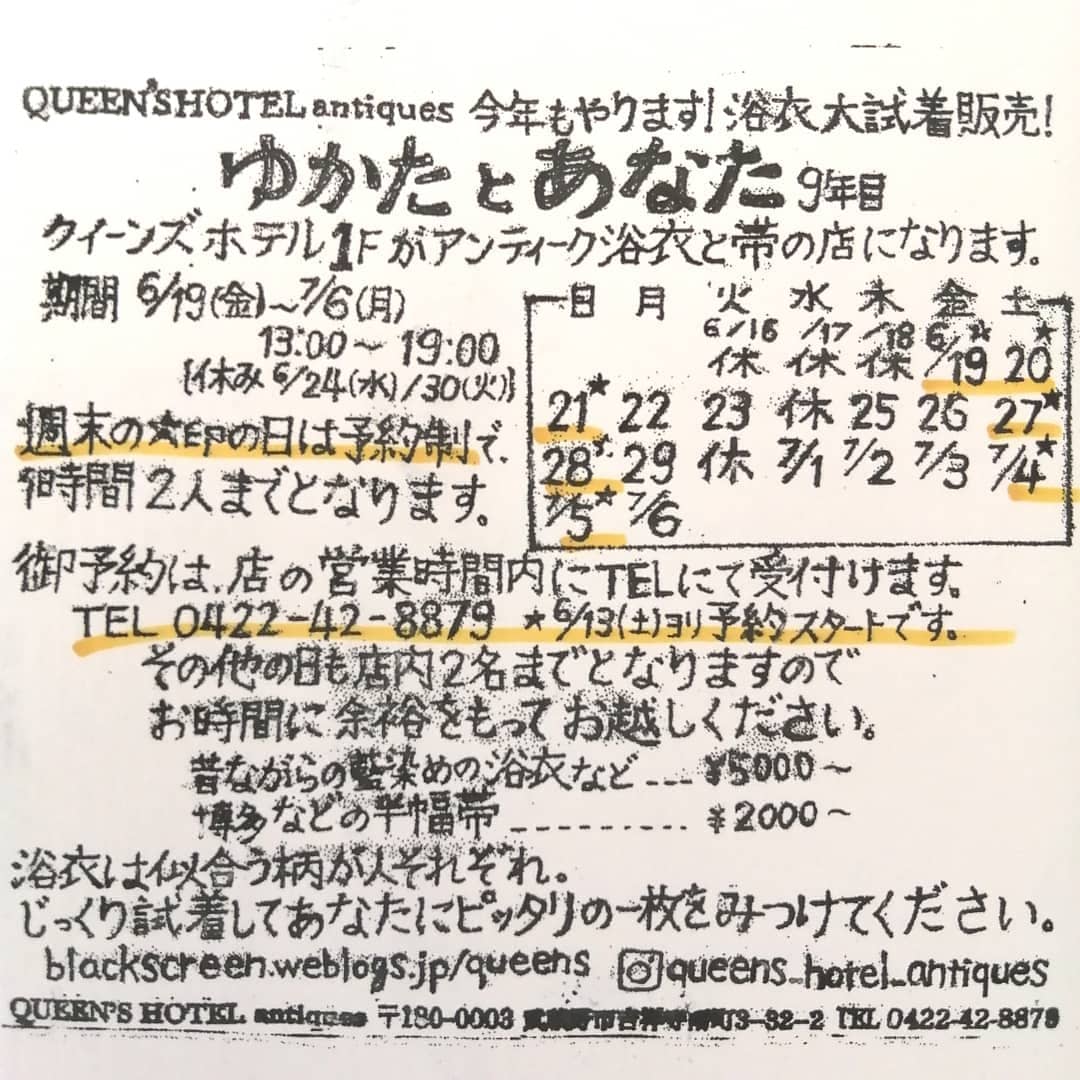 QUEEN'S HOTEL antiques 今年もやります!浴衣大試着販売!
ゆかたとあなた 9年目
クイーンズホテル1Fがアンティーク浴衣と帯の店になります。
期間 6/19(金)〜7/6(月)
13:00〜19:00
{休み 6/24(水)/30(火)}
週末の★印の日は予約制で、
1時間2人までとなります。
日 月 火 水 木 金 土
6/16 /17 /18 6/☆ ★
休 休 休 19 20
21★ 22 23 休 25 26 27★
28★ 29 休 7/1 7/2 7/3 7/4★
7/5★ 7/6
御予約は、店の営業時間内にTELにて受付けます。
TEL 0422-42-8879 ★6/13(土)ヨリ予約スタートです。
その他の日も店内2名までとなりますので
お時間に余裕をもってお越しください。
昔ながらの藍染めの浴衣など --- ¥5000〜
博多などの半幅帯 --------- ¥2000〜
浴衣は似合う柄が人それぞれ。
じっくり試着してあなたにピッタリの一枚をみつけてください。
blackscreen.weblogs.jp/queens queens_hotel_antiques
QUEEN'S HOTEL antiques 〒180-0003 武蔵野市吉祥寺南町3-32-2 TEL 0422-42-8879